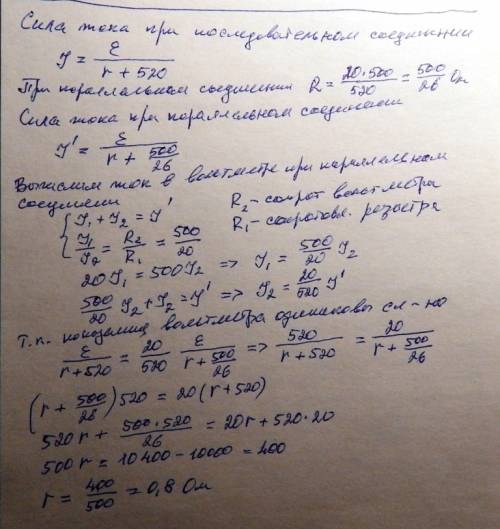 Сила тока при последовательном соединении
I = ε / (r + 520)
При параллельном соединении R = 20·500 / 520 = 500 / 26 Ом
Сила тока при параллельном соединении
I' = ε / (r + 500/26)
Вычислим ток в вольтметре при параллельном
соединении
R₂ - сопрот вольтметра
R₁ - резистра
{ I₁ + I₂ = I'
I₁ / I₂ = R₂ / R₁ = 500 / 20
20 I₁ = 500 I₂ => I₁ = 500/20 I₂
500/20 I₂ + I₂ = I' => I₂ = 20/520 I'
Т.к. вольтметра одинаковы сл-но
ε / (r + 520) = 20/520 ε / (r + 500/26) => 520 / (r + 520) = 20 / (r + 500/26)
(r + 500/26) 520 = 20 (r + 520)
520 r + 500·520 / 26 = 20 r + 520·20
500 r = 10 400 - 10000 = 400
r = 400 / 500 = 0,8 Ом